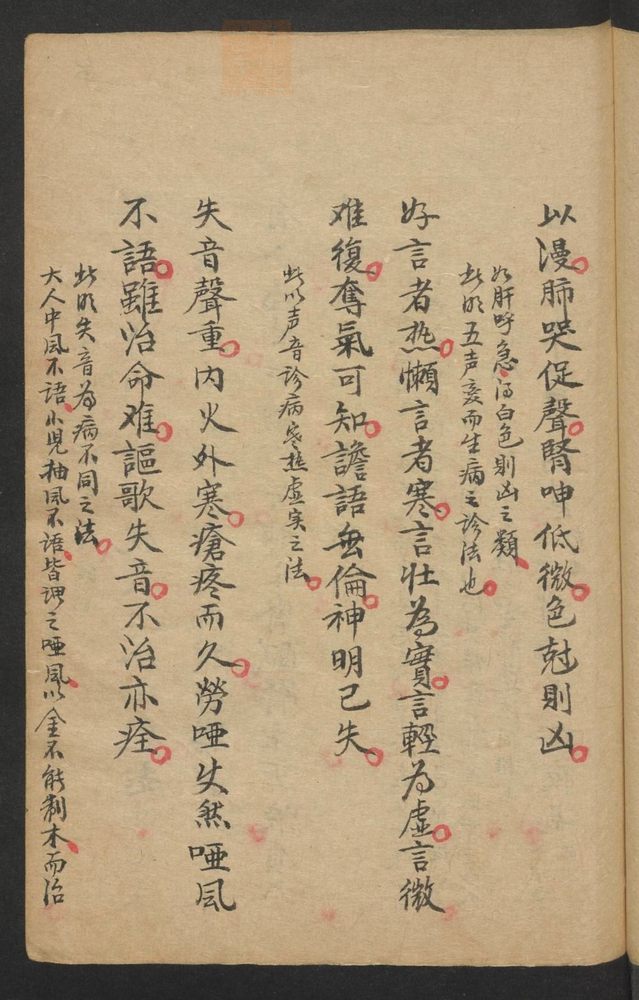 以漫肺哭促聲腎呻低微色尅則凶
如肝呼急得白色則凶之類
此明五声变而生病之診法也
好言者热懶言者寒言壮為實言輕為虚言微
难復奪氣可知譫語無倫神明已失
此以声音診病寒热虚实之法
失音聲重内火外寒瘡疼而久勞啞史然啞風
不語雖治命难謳歌失音不治亦痊
此明失音為病不同之法
大人中風不語小児抽風不語皆謂之啞風以金不能制木而治